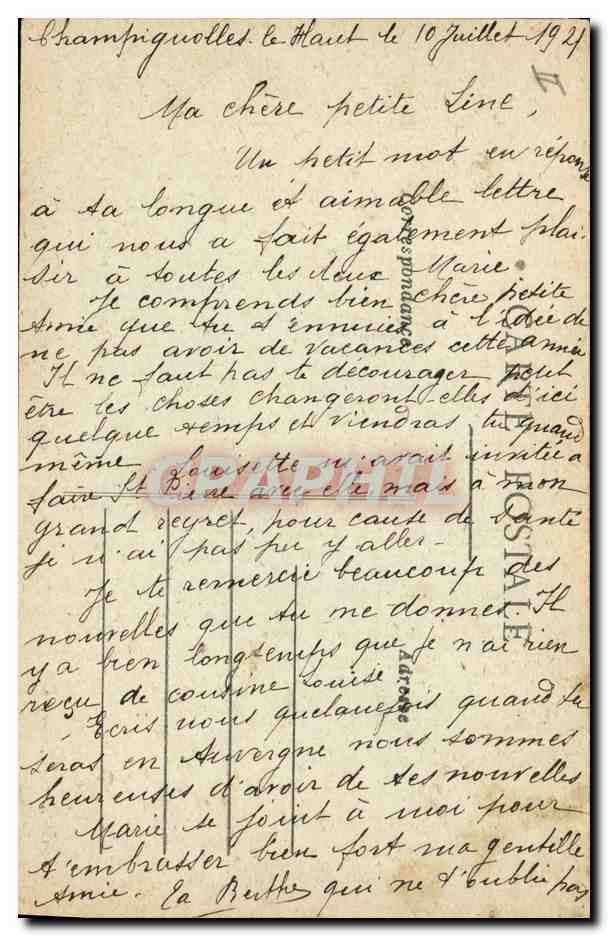 Champignolles le Haut le 10 Juillet 1921
II
Ma chère petite Line,
Un petit mot en réponse
à ta longue et aimable lettre
qui nous a fait également plai-
sir à toutes les deux Marie.
Je comprends bien chère petite
Amie que tu t'ennuies à l'idée de
ne pas avoir de vacances cette année
Il ne faut pas te décourager peut
être les choses changeront elles d'ici
quelque temps et viendras tu quand
même. Louisette m'avait invitée à
faire St Pierre avec elle, mais à mon
grand regret, pour cause de santé
je n'ai pas pu y aller.
Je te remercie beaucoup des
nouvelles que tu me donnes. Il
y a bien longtemps que je n'ai rien
reçu de cousine Louise.
Ecris nous quelquefois quand tu
seras en Auvergne nous sommes
heureuses d'avoir de tes nouvelles
Marie se joint à moi pour
t'embrasser bien fort ma gentille
Amie. Ta Berthe qui ne t'oublie pas
Correspondance
CARTE POSTALE
Adresse
CPAPHIL